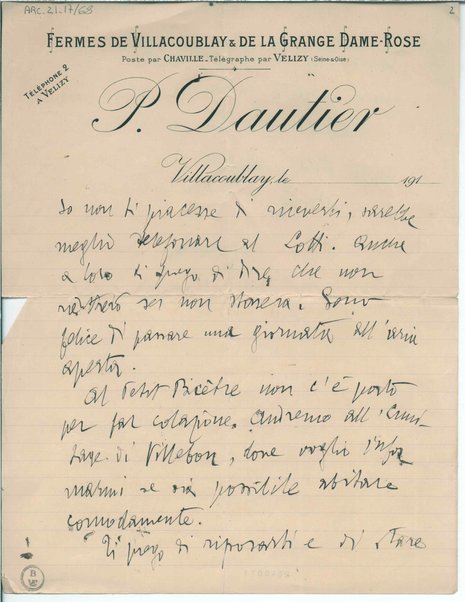 ARC.21.17/68
2
FERMES DE VILLACOUBLAY & DE LA GRANGE DAME-ROSE
Poste par CHAVILLE_Télégraphe par VELIZY (Seine & Oise)
TÉLÉPHONE 2
A VELIZY
P. Dautier
Villacoublay, le 191
Se non ti piacesse di riceverli, sarebbe
meglio telefonare al Lotti. Anche
a loro ti prego di dire, che non
rientrerò se non stasera. Sono
felice di passare una giornata all'aria
aperta.
Al Petit Bicêtre non c'è posto
per far colazione. Andremo all'Ermi-
tage di Villebon, dove voglio infor
marmi se sia possibile abitare
comodamente.
Ti prego di riposarti e di stare